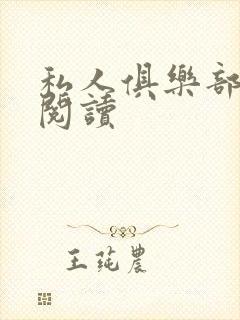 私人俱樂部
閱讀
王莼農